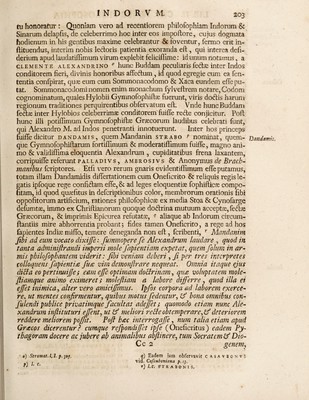 INDORVM. 203
tu honoratur: Quoniam vero ad recentiorem philosophiam Indorum &
Sinarum delapsis, de celeberrimo hoc inter eos impostore, cujus dogmata
hodienum in his gentibus maxime celebrantur & foventur, sermo erit in-
stituendus, interim nobis lectoris patientia exoranda est, qui intrea defi-
derium apud laudatissimum virum explebit felicissime: id unum notamus, a
CLEMENTE ALEXANDRINO hunc Buddam peculiaris sectæ inter Indos
conditorem fieri, divinis honoribus affectum, id quod egregie cum ea sen-
tentia conspirat, quæ eum cum Sommonacodomo & Xaca eundem esse pu-
tat. Sommonacodomi nomen enim monachum sylvestrem notare, Codom
cognominatum, quales Hylobii Gymnosophistæ fuerunt, viris doctis harum
regionum traditiones perquirentibus observatum est. Unde hunc Buddam
sectæ inter Hylobios celeberrimæ conditorem fuisse recte conjicitur. Post
hunc illi potissimum Gymnosophistæ Græcorum laudibus celebrati sunt,
qui Alexandro M. ad Indos penetranti innotuerunt. Inter hos princeps
fuisse dicitur DANDAMIS, quem Mandanin STRABO nominat, quem-
Dandamis.
que Gymnosophistarum fortissimum & moderatissimum fuisse, magno ani-
mo & validissima eloquentia Alexandrum, cupiditatibus frena laxantem,
corripuisse referunt PALLADIUS, AMBROSIVS & Anonymus de Brach-
manibus scriptores. Etsi vero rerum gnaris evidentissimum esse putamus,
totam illam Dandamidis dissertationem cum Onesicrito & reliquis regis le-
gatis ipsoque rege confictam esse, & ad leges eloquentiæ sophisticæ compo-
sitam, id quod quoslibet in descriptionibus color, membrorum orationis sibi
oppositorum artificium, rationes philosophicæ ex media Stoa & Cynosarge
desumtæ, immo ex Christianorum quoque doctrina mutuum accepta, sectas
Græcorum, & inprimis Epicurea refutatæ, aliaque ab Indorum circum-
stantiis mire abhorrentia probant: fides tamen Onesicrito, a rege ad hos
sapientes Indiæ misso, temere deneganda non est, scribenti, Mandanin
sibi ad eum vocato dixisse: summopere se Alexandrum laudare, quod in
tanta administrandi imperii mole sapientiam expetat, quem solum in ar-
mis philosophantem viderit: sibi veniam deberi, si per tres interpretes
colloquens sapientiæ suæ vim demonstrare nequeat. Omnia itaque ejus
dicta eo pertinuisse; eam esse optimam doctrinam, quæ voluptatem mole-
stiamque animo eximeret; molestiam a labore differre, quod illa ei
esset inimica, alter vero amicissimus. Ipsos corpora ad laborem exerce-
re, ut mentes confirmentur, quibus motus sedentur, & bona omnibus con-
sulendi publice privatimque facultas adesset; quomodo etiam nunc Ale-
xandrum instituturi essent, ut & meliori recte obtemperare, & deteriorem
reddere meliorem possit. Post hæc interrogasse, num talia etiam apud
Græcos dicerentur? cumque respondisset ipse (Onesicritus) eadem Py-
thagoram docere ac jubere ab animalibus abstinere, tum Socratem & Dio-
Cc 2 genem,
o) Stromat. L.I. p. 305.
p) l. c.
q) Eadem jam observavit CASAVBONVS
vid. Casauboniana p. 13.
r) Lc. STRABONIS.